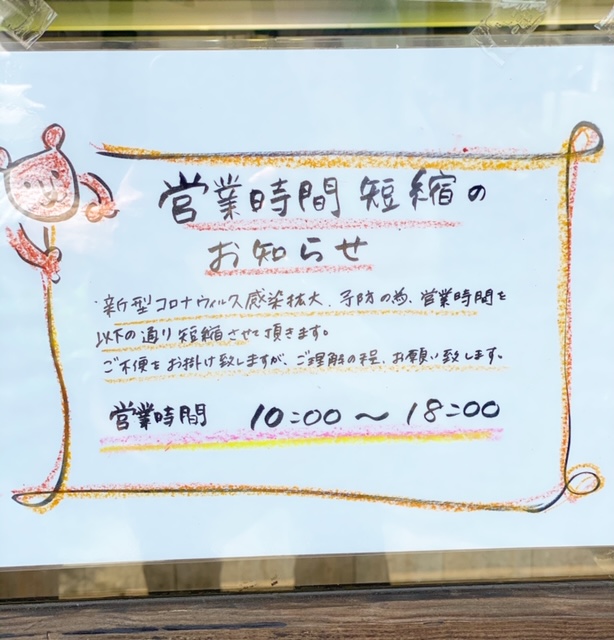 営業時間短縮の
お知らせ
新型コロナウィルス感染拡大、予防の為、営業時間を
以下の通り短縮させて頂きます。
ご不便をお掛け致しますが、ご理解の程、お願い致します。
営業時間 10:00〜18:00